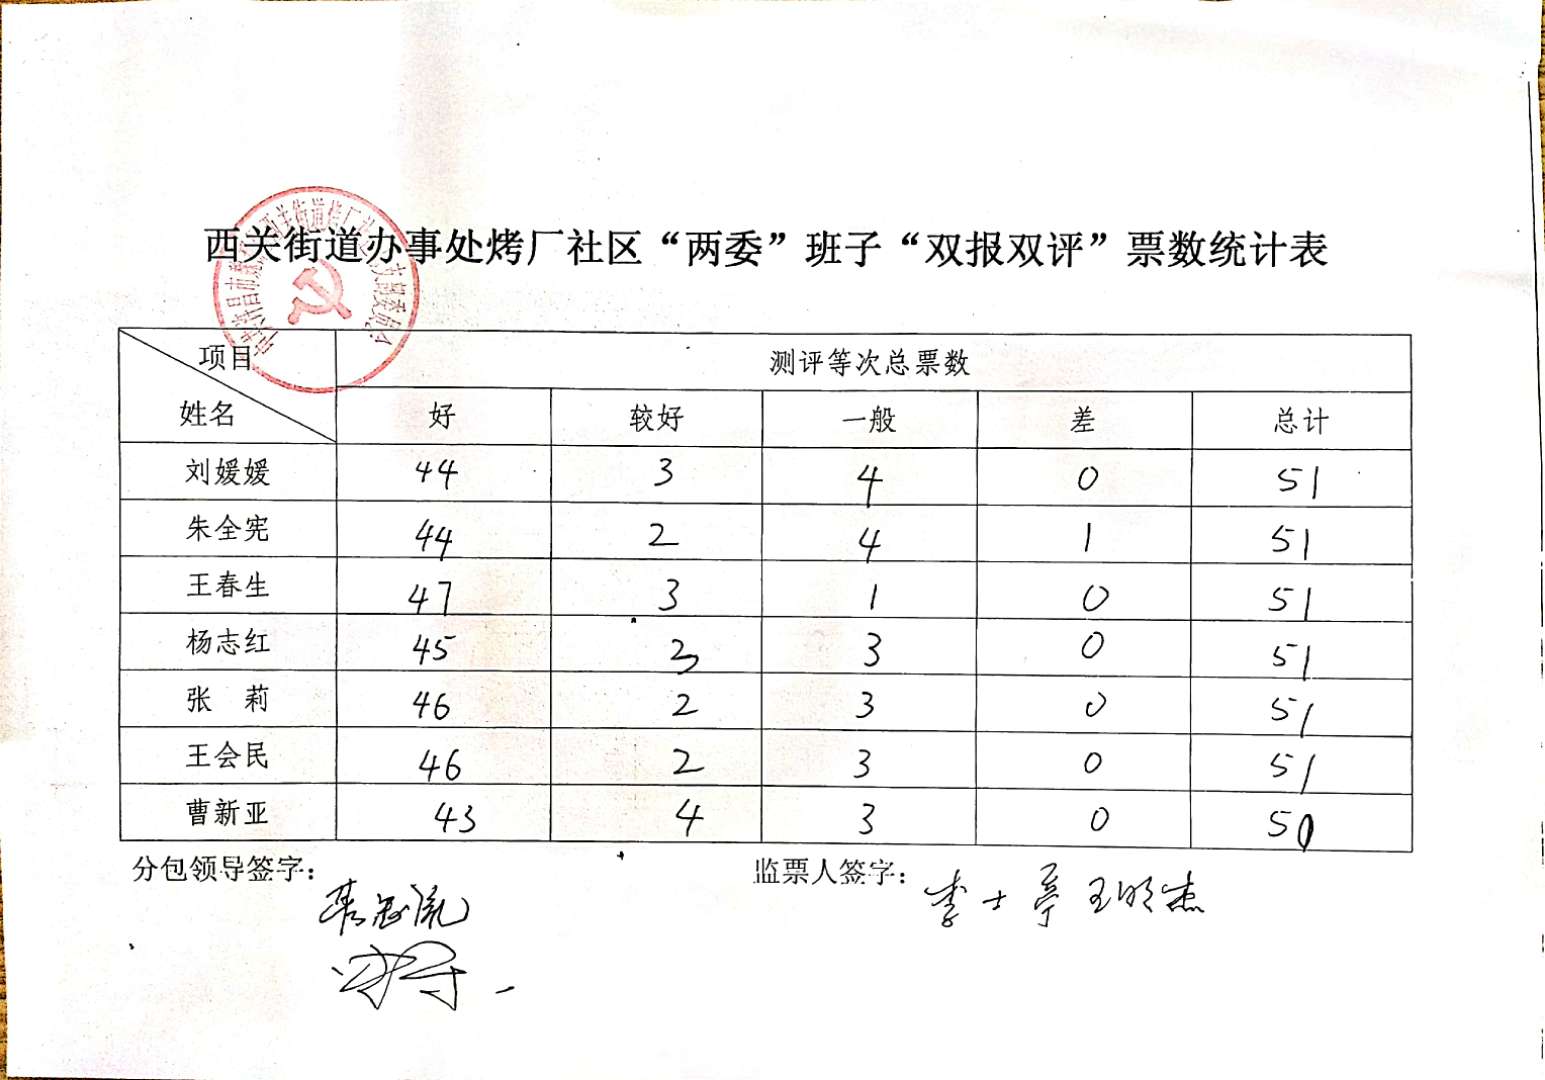 西关街道办事处烤厂社区“两委”班子“双报双评”票数统计表
项目 测评等次总票数
姓名 好 较好 一般 差 总计
刘媛媛 44 3 4 0 51
朱全宪 44 2 4 1 51
王春生 47 3 1 0 51
杨志红 45 3 3 0 51
张 莉 46 2 3 0 51
王会民 46 2 3 0 51
曹新亚 43 4 3 0 50
分包领导签字： 监票人签字：
李士亭 王明杰